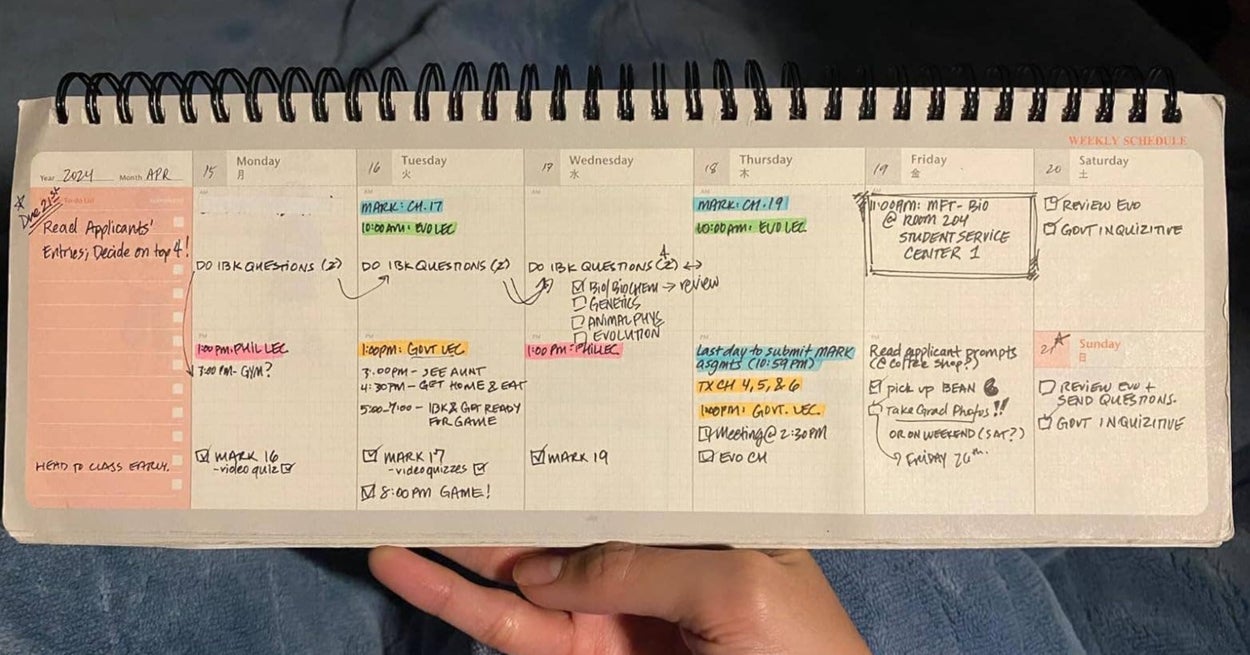 WEEKLY SCHEDULE
Year 2024 Month APR
★ Due 21st
To-do List
Read Applicants'
Entries; Decide on top 4!
HEAD TO CLASS EARLY.
15 Monday
月
DO IBK QUESTIONS (2)
PM
1:00 PM: PHIL LEC
3:00 PM - GYM?
MARK 16
- video quiz
16 Tuesday
火
AM
MARK: CH. 17
10:00 AM: EVO LEC
DO IBK QUESTIONS (2)
PM
1:00PM: GOVT LEC
3:00PM - SEE AUNT
4:30PM - GET HOME & EAT
5:00-7:00 - IBK & GET READY
FOR GAME
MARK 17
- video quizzes
8:00 PM GAME!
17 Wednesday
水
AM
DO IBK QUESTIONS (2) 4 ↔
BIO/BIOCHEM → review
GENETICS
ANIMAL PHYS
EVOLUTION
PM
1:00 PM: PHIL LEC
MARK 19
18 Thursday
木
AM
MARK: CH. 19
10:00 AM: EVO LEC
Last day to submit MARK
asgmts (10:59 PM)
TX CH 4, 5, & 6
1:00PM: GOVT. LEC
Meeting @ 2:30PM
EVO CH
19 Friday
金
11:00AM: MFT-BIO
@ ROOM 204
STUDENT SERVICE
CENTER 1
PM
Read applicant prompts
(@ coffee shop?)
pick up BEAN
Take Grad Photos!!
OR ON WEEKEND (SAT?)
FRIDAY 26th.
20 Saturday
土
REVIEW EVO
GOVT INQUIZITIVE
21 ★ Sunday
日
REVIEW EVO +
SEND QUESTIONS.
GOVT INQUIZITIVE